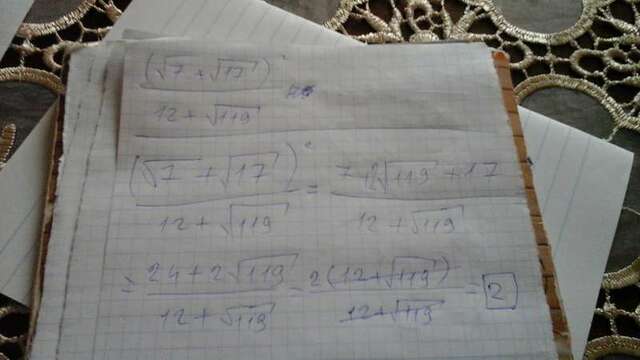 (√7 + √17)²
12 + √119
(√7 + √17)² = 7 + 2√119 + 17
12 + √119 12 + √119
= 24 + 2√119 = 2(12 + √119) = 2
12 + √119 12 + √119